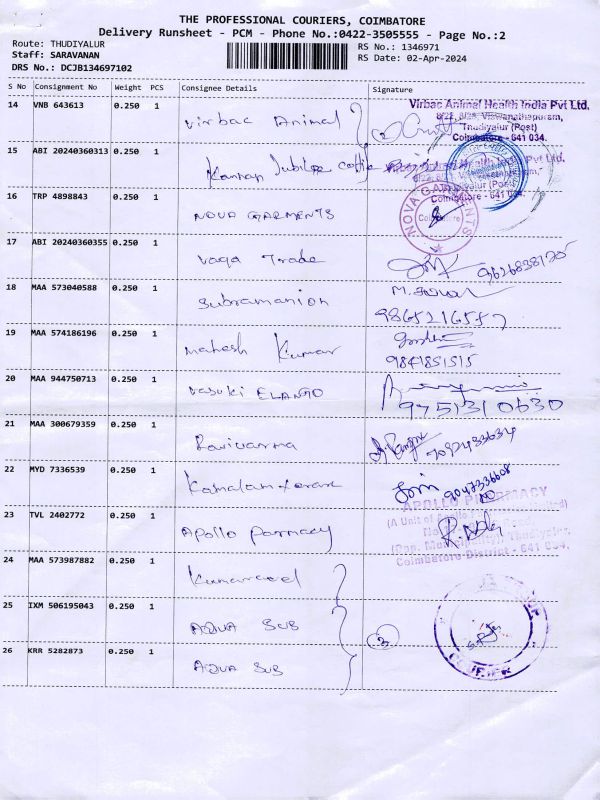 THE PROFESSIONAL COURIERS, COIMBATORE
Delivery Runsheet - PCM - Phone No.:0422-3505555 - Page No.:2
Route: THUDIYALUR
Staff: SARAVANAN
DRS No.: DCJB134697102
RS No.: 1346971
RS Date: 02-Apr-2024
S No Consignment No Weight PCS Consignee Details Signature
14 VNB 643613 0.250 1 Virbac Animal
Virbac Animal Health India Pvt Ltd,
Thudiyalur (Post)
Coimbatore - 641 034.
15 ABI 20240360313 0.250 1 Jubilee
Coimbatore - 641 034.
16 TRP 4898843 0.250 1 NOVA GARMENTS
NOVA GARMENTS
Coimbatore
17 ABI 20240360355 0.250 1 Vaga Trade
18 MAA 573040588 0.250 1 Subramanion
9865216557
19 MAA 574186196 0.250 1 Mahesh Kumar
9841851515
20 MAA 944750713 0.250 1 Vasuki ELANGO
9751310630
21 MAA 300679359 0.250 1 Ravivarma
22 MYD 7336539 0.250 1
9047336608
23 TVL 2402772 0.250 1 Apollo Parmacy
APOLLO PHARMACY
Coimbatore District - 641 034.
24 MAA 573987882 0.250 1
25 IXM 506195043 0.250 1 AQUA SUB
3
26 KRR 5282873 0.250 1 AQUA SUB